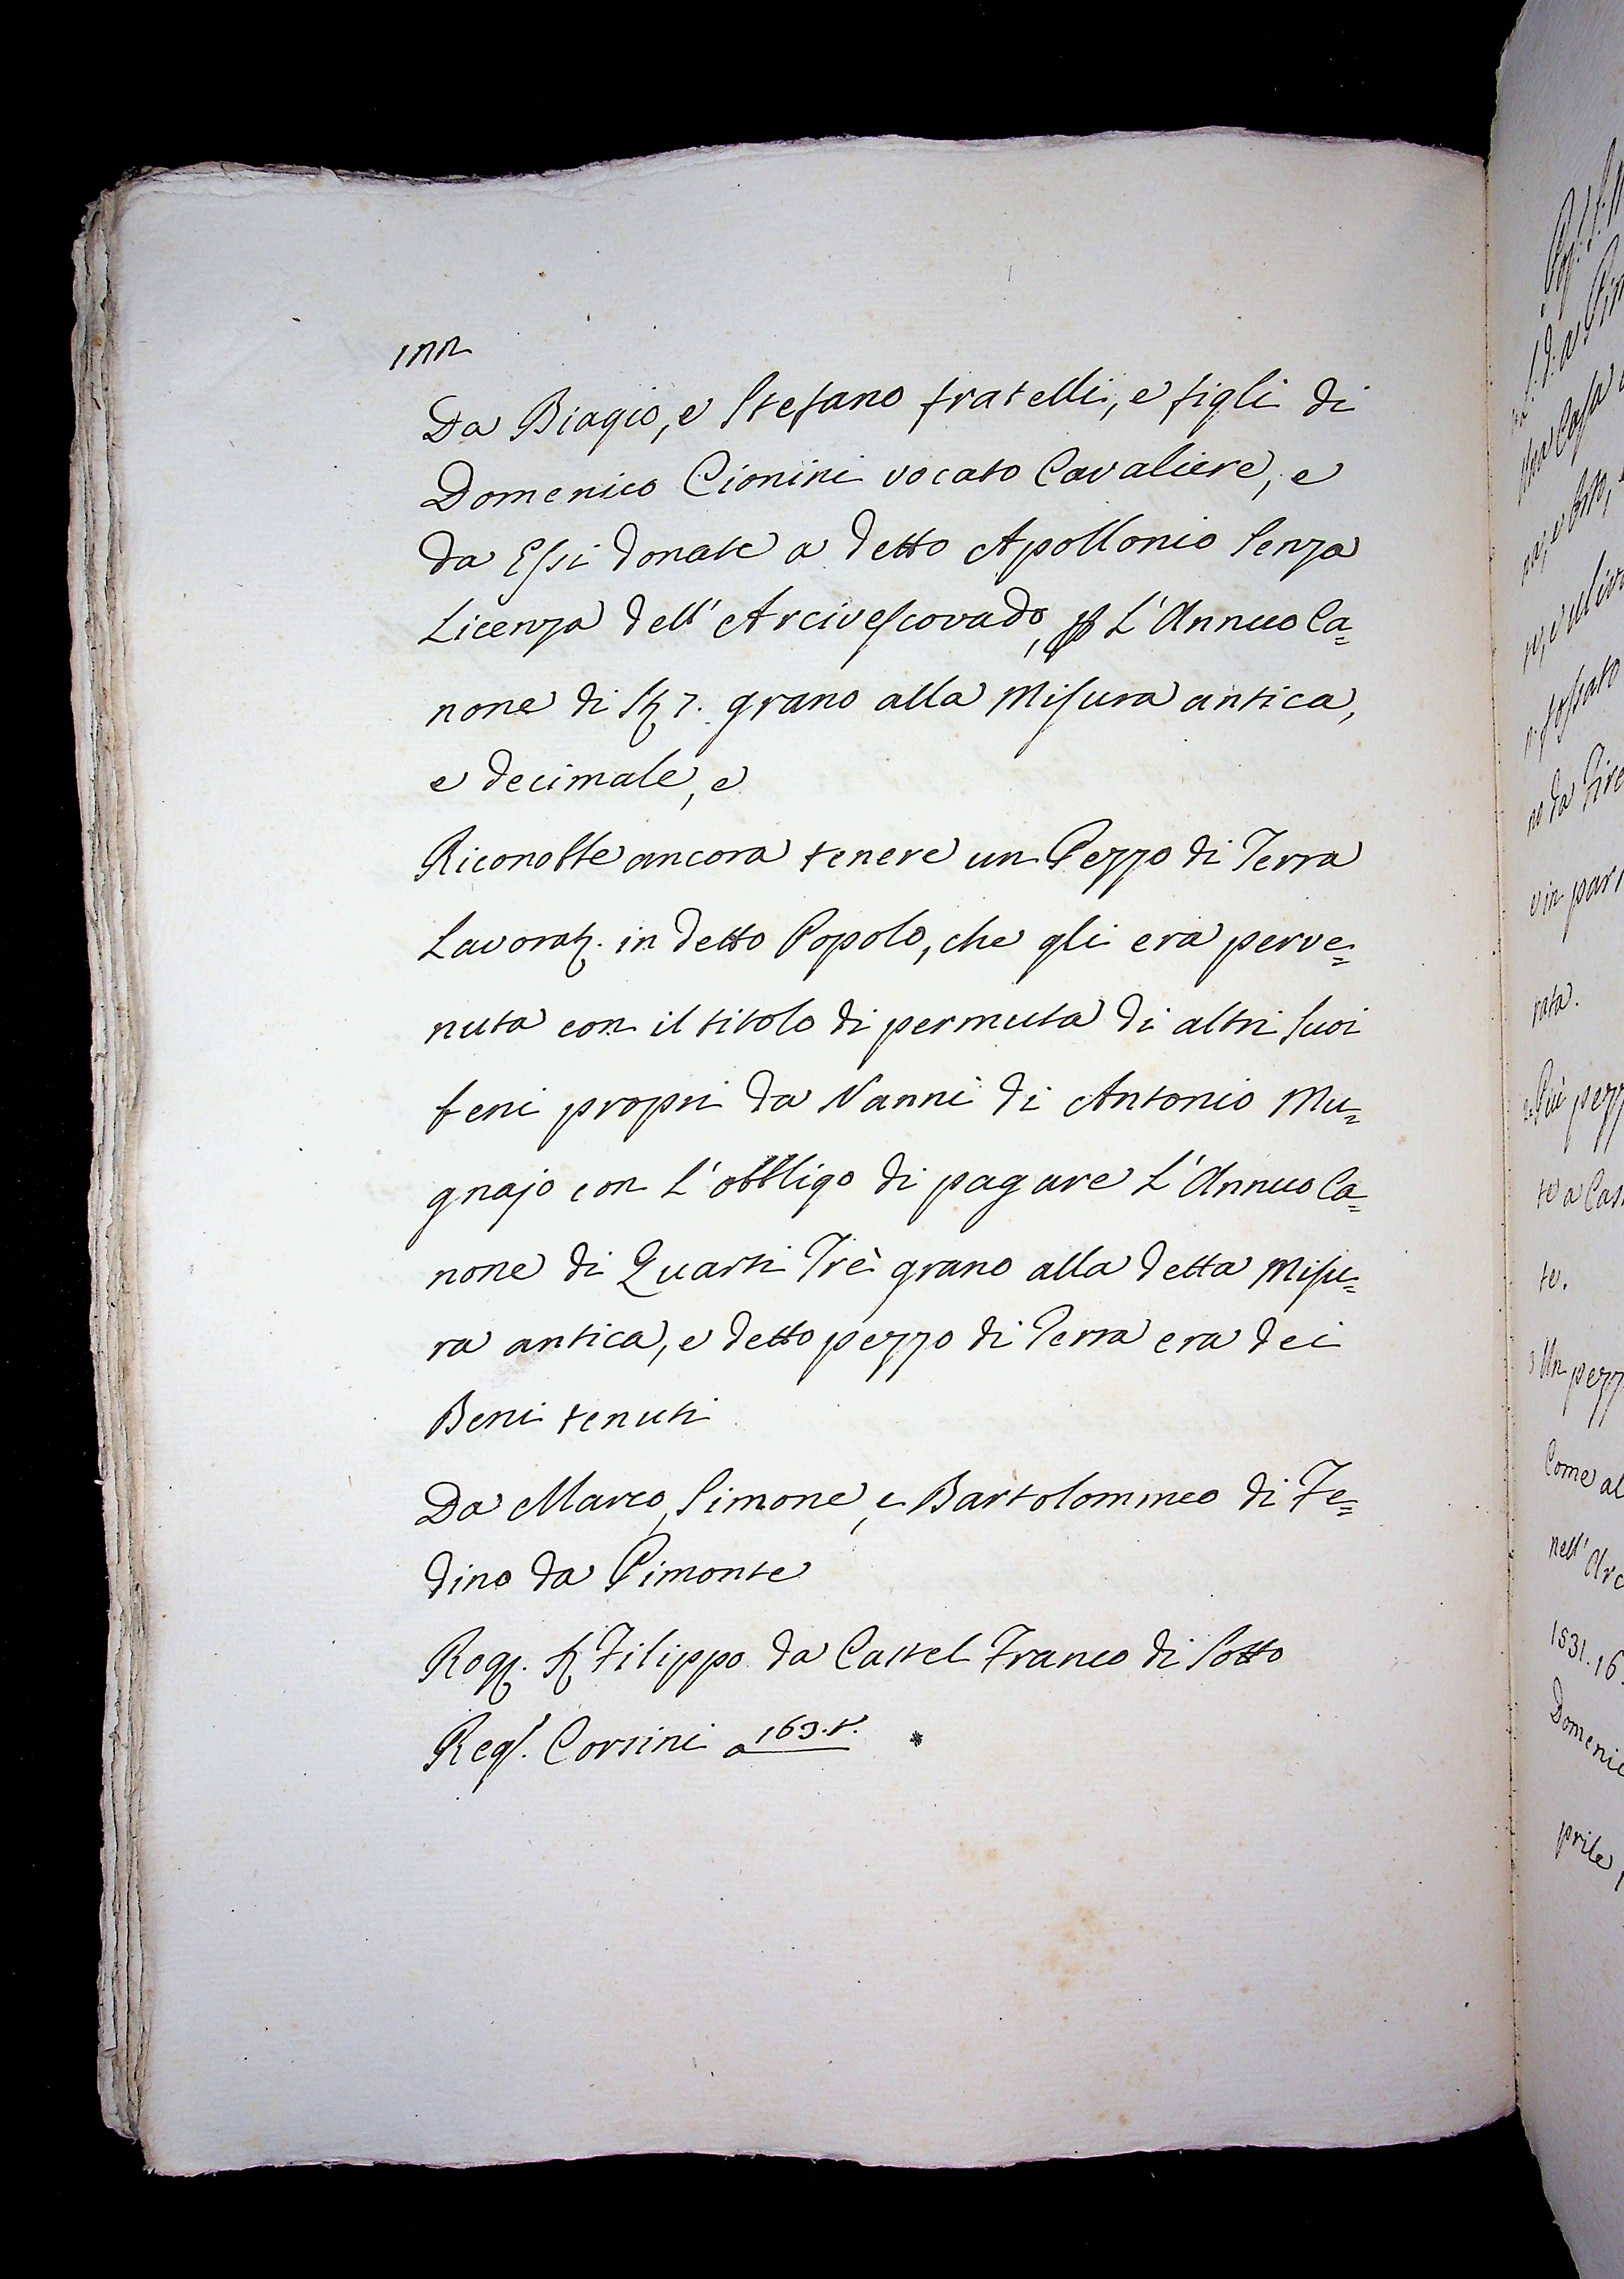 Da Biagio, e Stefano fratelli, e figli di
Domenico Cionini vocato Cavaliere, e
da Essi donate a detto Apollonio senza
Licenza dell'Arcivescovado, p L'Annuo Ca=
none di St 7. grano alla Misura antica,
e decimale, e
Riconobbe ancora tenere un Pezzo di Terra
Lavorat. in detto Popolo, che gli era perve=
nuta con il titolo di permuta di altri suoi
beni propri da Nanni di Antonio Mu=
gnajo con L'obbligo di pagare L'Annuo Ca=
none di Quarti Trè grano alla detta Misu=
ra antica, e detto pezzo di Terra era dei
Beni tenuti
Da Marco, Simone, e Bartolommeo di Fe=
dino da Pimonte
Rog. Filippo da Castel Franco di Sotto
Reg. Corsini a 163.t.
rata.
te.
1531. 16.